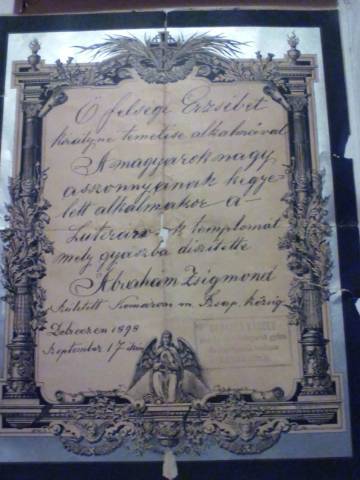 Ő felsége Erzsébet
királyne temetése alkalmával
A magyarok nagy
asszonnyának kegye
lett alkalmakor a
templomát
mely gyászba diszitette
Abraham Zsigmond
Született Komárom m.
Debreczen 1898
Szeptember 17 én